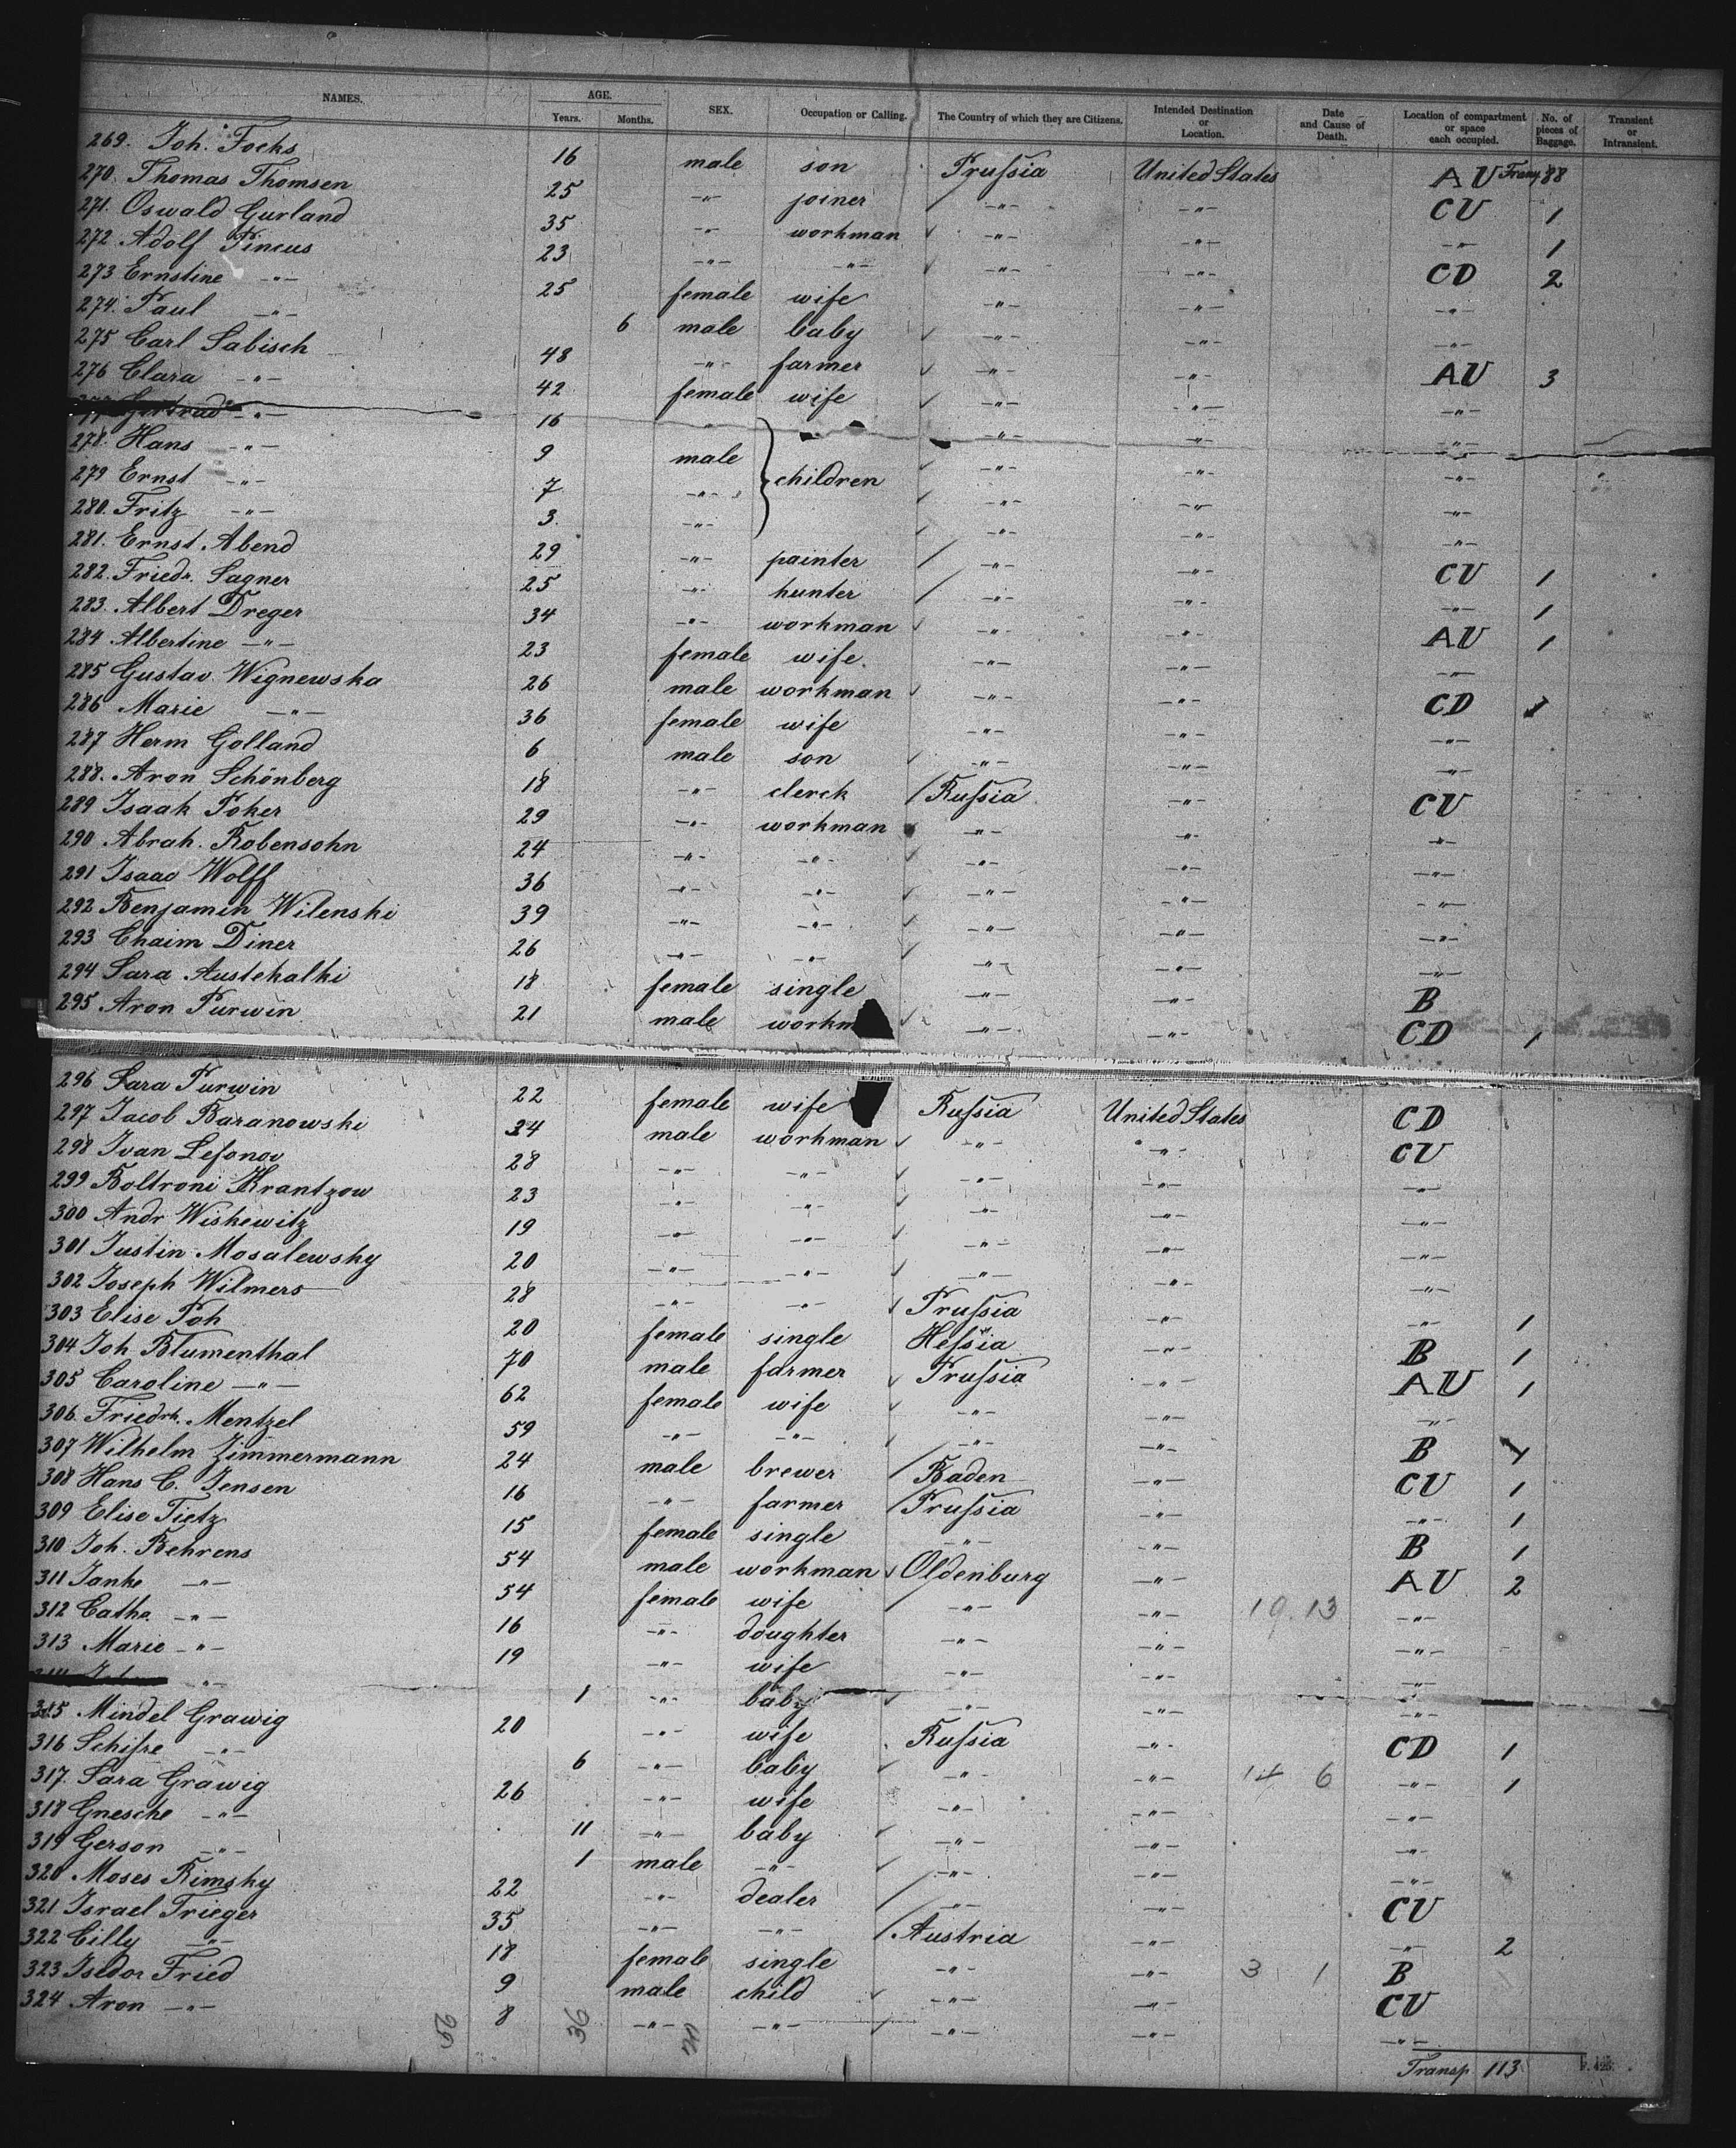 NAMES. AGE. Years. Months. SEX. Occupation or Calling. The Country of which they are Citizens. Intended Destination or Location. Date and Cause of Death. Location of compartment or space each occupied. No. of pieces of Baggage. Transient or Intransient.
269. Joh. Focks 16 male son Prussia United States AU Transp 88
270. Thomas Thomsen 25 -"- joiner / -"- -"- CU 1
271. Oswald Gurland 35 -"- workman -"- -"- -"- 1
272. Adolf Pincus 23 -"- -"- -"- -"- CD 2
273 Ernstine -"- 25 female wife -"- -"- -"-
274. Paul -"- 6 male baby -"- -"- -"-
275 Carl Sabisch 48 -"- farmer -"- -"- AU 3
276 Clara -"- 42 female wife -"- -"- -"-
277 Gertrud -"- 16 " -"- -"- -"-
278. Hans -"- 9 male children -"- -"- -"-
279 Ernst -"- 7 -"- -"- -"- -"-
280. Fritz -"- 3. -"- -"- -"- -"-
281. Ernst Abend 29 -"- painter / -"- -"- CU 1
282. Friedr. Sagner 25 -"- hunter / -"- -"- -"- 1
283. Albert Dreger 34 -"- workman -"- -"- AU 1
284 Albertine -"- 23 female wife. -"- -"- -"-
285 Gustav Wignewska 26 male workman -"- -"- CD 1
286 Marie -"- 36 female wife -"- -"- -"-
287 Herm Golland 6 male son -"- -"- -"-
288. Aron Schönberg 18 -"- clerck / Russia -"- CU
289 Isaak Poker 29 -"- workman -"- -"- -"-
290 Abrah. Robensohn 24 -"- -"- -"- -"- -"-
291 Isaac Wolff 36 -"- -"- -"- -"- -"-
292 Benjamin Wilenski 39 -"- -"- -"- -"- -"-
293 Chaim Diner 26 -"- -"- -"- -"- -"-
294 Sara Austekalki 18 female single -"- -"- B
295 Aron Purwin 21 male workm -"- -"- CD 1
296 Sara Purwin 22 female wife Russia United States CD
297 Jacob Baranowski 24 male workman -"- -"- CU
298 Ivan Lesonov 28 -"- -"- -"- -"- -"-
299 Boltroni Krantzow 23 -"- -"- -"- -"- -"-
300 Andr Wishewitz 19 -"- -"- -"- -"- -"-
301 Justin Mosalewsky 20 -"- -"- -"- -"- -"-
302 Joseph Wilmers 28 -"- -"- Prussia -"- -"- 1
303 Elise Poh 20 female single Hessia -"- B 1
304 Joh Blumenthal 70 male farmer Prussia -"- AU 1
305 Caroline -"- 62 female wife -"- -"- -"-
306. Friedrk. Mentzel 59 -"- -"- -"- -"- B 1
307 Wilhelm Zimmermann 24 male brewer / Baden -"- CU 1
308 Hans C. Jensen 16 -"- farmer / Prussia -"- -"- 1
309 Elise Tietz 15 female single -"- -"- B 1
310 Joh. Behrens 54 male workman Oldenburg -"- AU 2
311 Janke -"- 54 female wife / -"- -"- 19.13 -"-
312 Catha. -"- 16 -"- doughter -"- -"- -"-
313 Marie -"- 19 -"- wife -"- -"- -"-
-"- 1 -"- baby -"- -"- -"-
315 Mindel Grawig 20 -"- wife Russia -"- CD 1
316 Schifre -"- 6 -"- baby -"- -"- 14 6 -"- 1
317. Sara Grawig 26 -"- wife -"- -"- -"-
318 Gnesche -"- 11 -"- baby -"- -"- -"-
319 Gerson -"- 1 male -"- -"- -"- -"-
320 Moses Rimsky 22 -"- dealer / -"- -"- CU
321 Israel Trieger 35 -"- -"- / Austria -"- -"- 2
322 Cilly -"- 18 female single -"- -"- 3 1 B
323 Isidor Fried 9 male child -"- -"- CU
324 Aron -"- 8 -"- -"- -"- -"- -"-
29 36
Transp 113